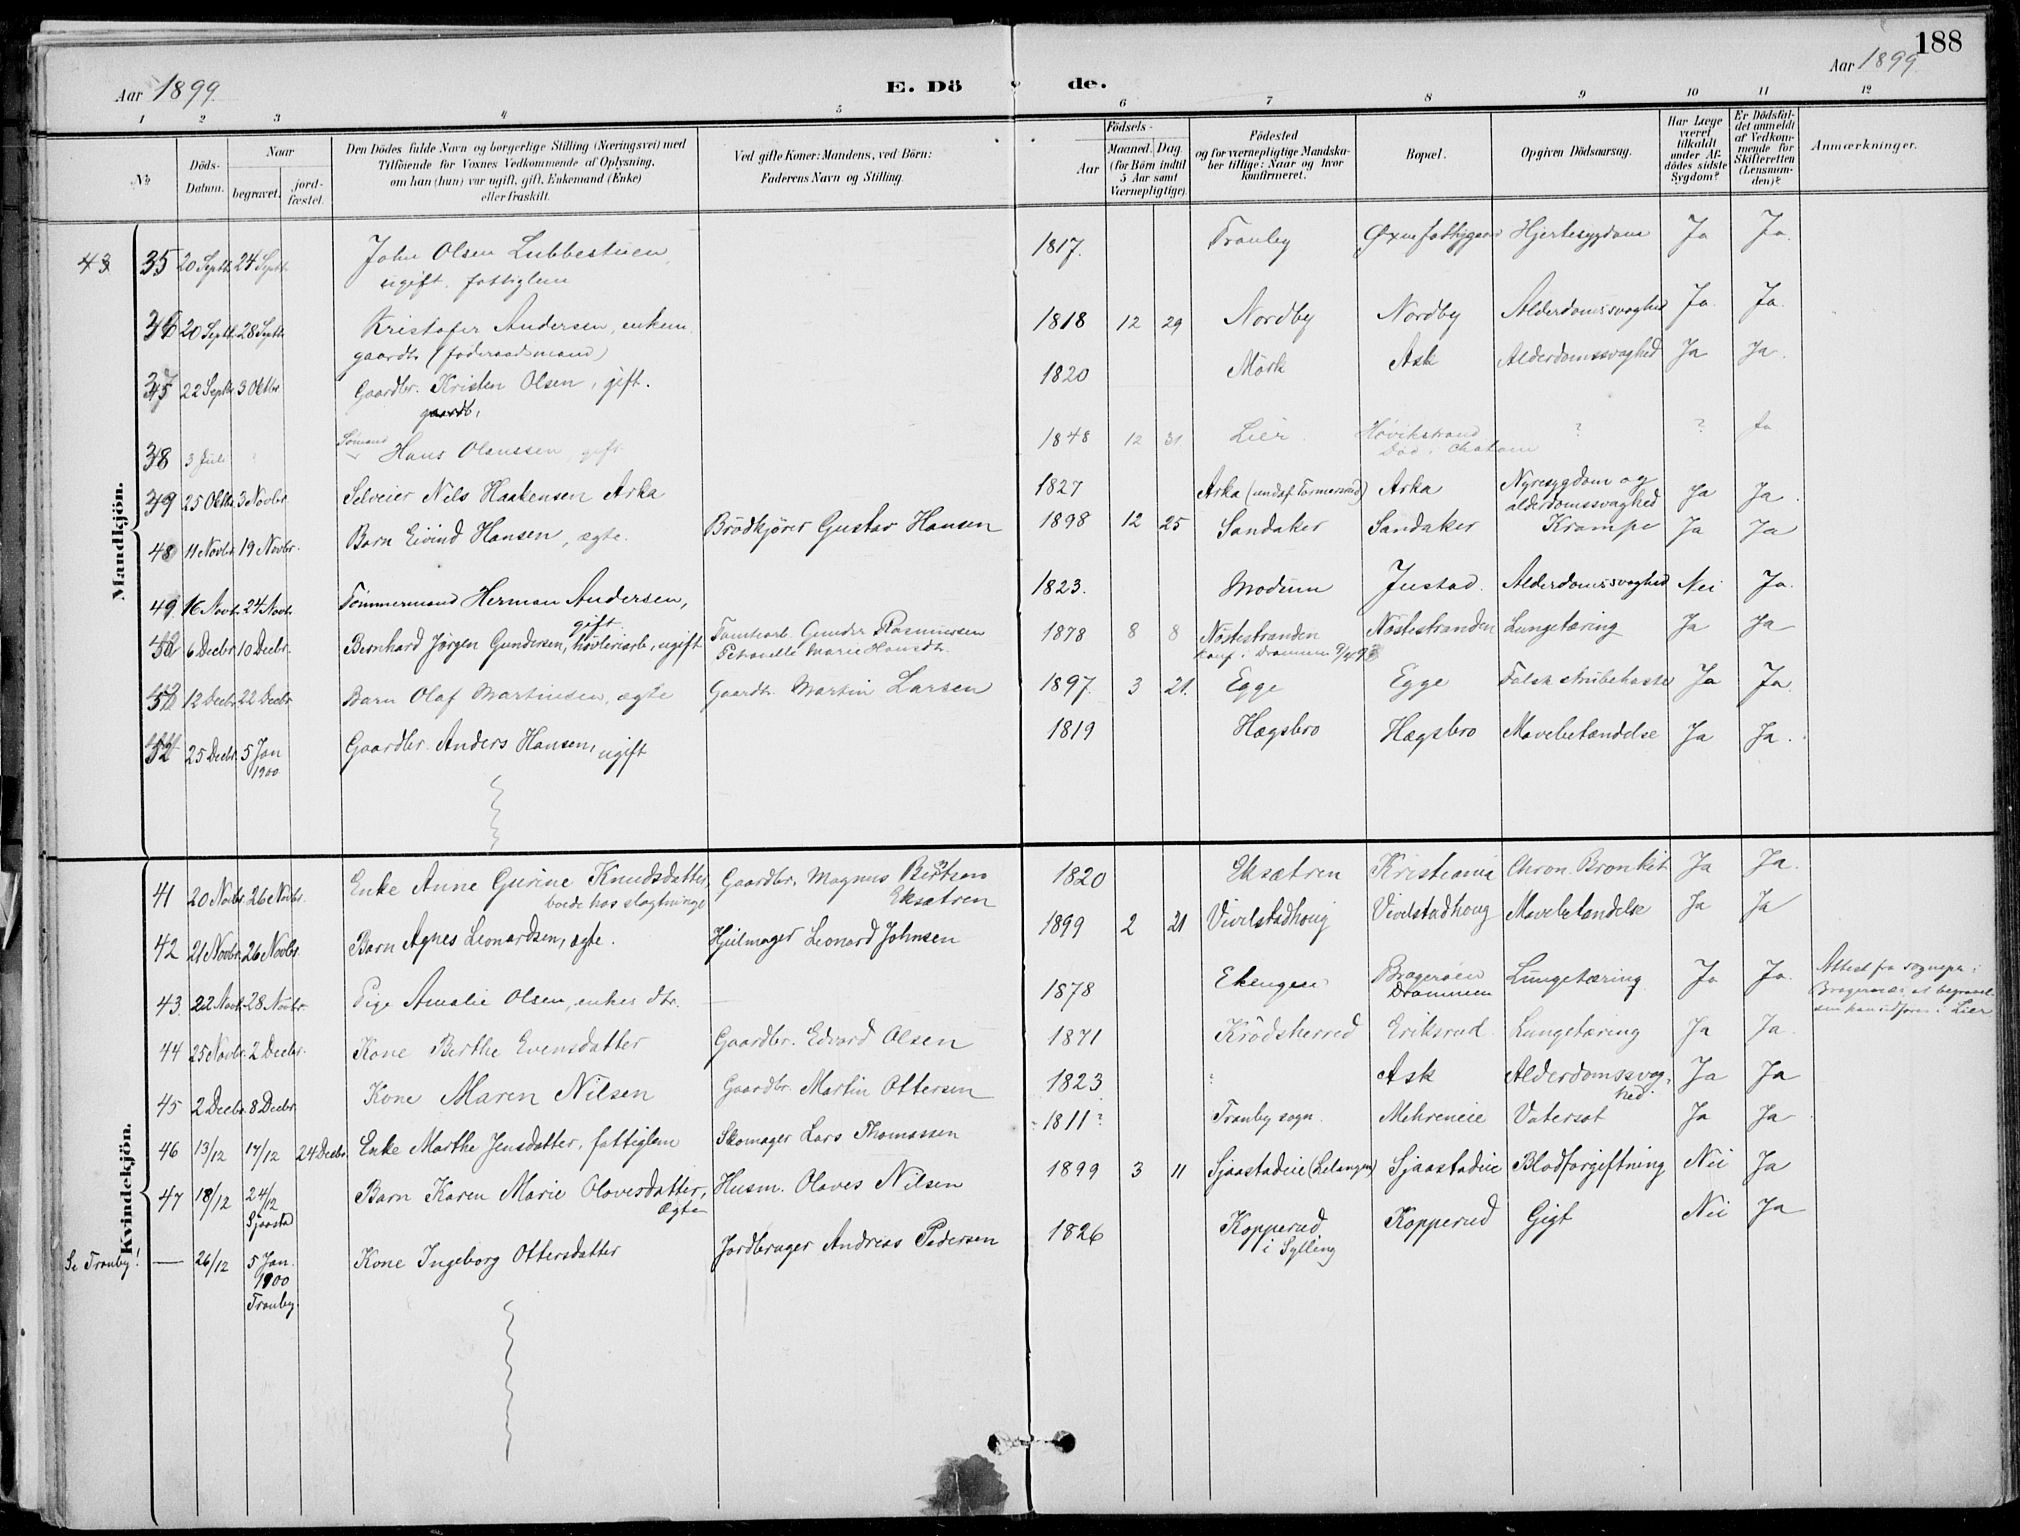 188
Aar 1899.
E. Dö de.
Aar 1899
1 2 3 4 5 6 7 8 9 10 11 12
No
Döds-Datum.
Naar
begravet.
jord-fæstet.
Den Dödes fulde Navn og borgerlige Stilling (Næringsvei) med
Tilföiende for Voxnes Vedkommende af Oplysning,
om han (hun) var ugift, gift, Enkemand (Enke)
eller fraskilt.
Ved gifte Koner: Mandens, ved Börn:
Faderens Navn og Stilling.
Födsels-
Aar
Maaned. Dag.
(for Börn indtil
5 Aar samt
Værnepligtige).
Födested
og for værnepligtige Mandska-
ber tillige: Naar og hvor
konfirmeret.
Bopæl.
Opgiven Dödsaarsag.
Har Læge
været
tilkaldt
under Af-
dödes sidste
Sygdom?
Er Dödsfal-
det anmeldt
af Vedkom-
mende for
Skifteretten
(Lensman-
den)?
Anmærkninger.
Mandkjön.
43 35 20 Septb. 24 Septb. John Olsen Lubbestuen, 1817. Tranby Hjertesygdom Ja Ja.
ugift. fattiglem
36 20 Septb. 28 Septb. Kristofer Andersen, enkem. 1818 12 29 Nordby Nordby Alderdomssvaghed Ja. Ja.
gaardbr. (föderaadsmand)
22 Septb. 3 Oktbr. Gaardbr. Kristen Olsen, gift. 1820 Mörk Ask Alderdomssvaghed Ja Ja.
gaardb.
38 3 Juli Sömand Hans Olaussen, gift 1848 12 31 Lier. Høvikstrand ? ? Ja
Död i Chatam
39 25 Oktbr. 3 Novbr. Selveier Nils Haakensen Arka 1827 Arka Arka Nyresygdom og Ja Ja.
alderdomssvaghed
48 11 Novbr. 19 Novbr. Barn Eivind Hansen, ægte. Brödkjörer Gustav Hansen 1898 12 25 Sandaker Sandaker Krampe Ja Ja
49 16 Novb. 24 Novb. Tömmermand Herman Andersen, 1823. Modum Justad. Alderdomssvaghed Nei Ja.
gift
6 Decbr. 10 Decbr. Bernhard Jörgen Gundersen, hövleriarb., ugift Gunder Rasmussen 1878 8 8 Nöstestranden Nöstestranden Lungetæring Ja Ja
Marie Hansdtr. konf. i Drammen
12 Decbr. 22 Decbr. Barn Olaf Martinsen, ægte Gaardbr. Martin Larsen 1897. 3 21. Egge Egge Falsk strubehoste Ja Ja.
52 25 Decbr. 5 Jan 1900 Gaardbr. Anders Hansen, ugift 1819 Hægsbro Hægsbro Mavebetændelse Ja Ja.
Kvindekjön.
41 20 Novbr. 26 Novbr. Enke Anne Gurine Knudsdatter, Gaardbr. Magnus 1820 Eksætren Kristiania Chron. Bronkit Ja Ja.
boede hos slægtninge Eksætren
42 21 Novbr. 26 Novbr. Barn Agnes Leonardsen, ægte. Hjulmager Leonard Johnsen 1899 2 21 Vivelstadhoug Vivelstadhoug Mavebetændelse Ja Ja
43. 22 Novb. 28 Novbr. Pige Amalie Olsen, enkes dtr. — 1878 Ekengen Bragerøen Drammen Lungetæring Ja Ja. Attest fra sognepr. i
Bragernæs at begravel-
sen kan udføres i Lier
44 25 Novbr. 2 Decbr. Kone Berthe Evensdatter Gaardbr. Edvard Olsen 1871 Krödsherred Eriksrud. Lungetæring Ja Ja.
45 2 Decbr. 8 Decbr. Kone Maren Nilsen Gaardbr. Martin Ottersen 1823 ? Ask Alderdomssvag-
hed. Ja Ja
46 13/12 17/12 24 Decbr. Enke Marthe Jensdatter, fattiglem Skomager Lars Thomassen 1811? Tranby sogn. Mehreneie Vatersot Ja Ja
47 18/12 24/12 Sjaastad Barn Karen Marie Olavesdatter, ægte Husm. Olaves Nilsen 1899 3 11 Sjaastadeie Sjaastadeie Blodforgiftning Nei Ja
Se Tranby! — 26/12 5 Jan. 1900 Tranby. Kone Ingeborg Ottersdatter Jordbruger Andreas Pedersen 1826 Kopperud i Sylling Kopperud Gigt Nei Ja